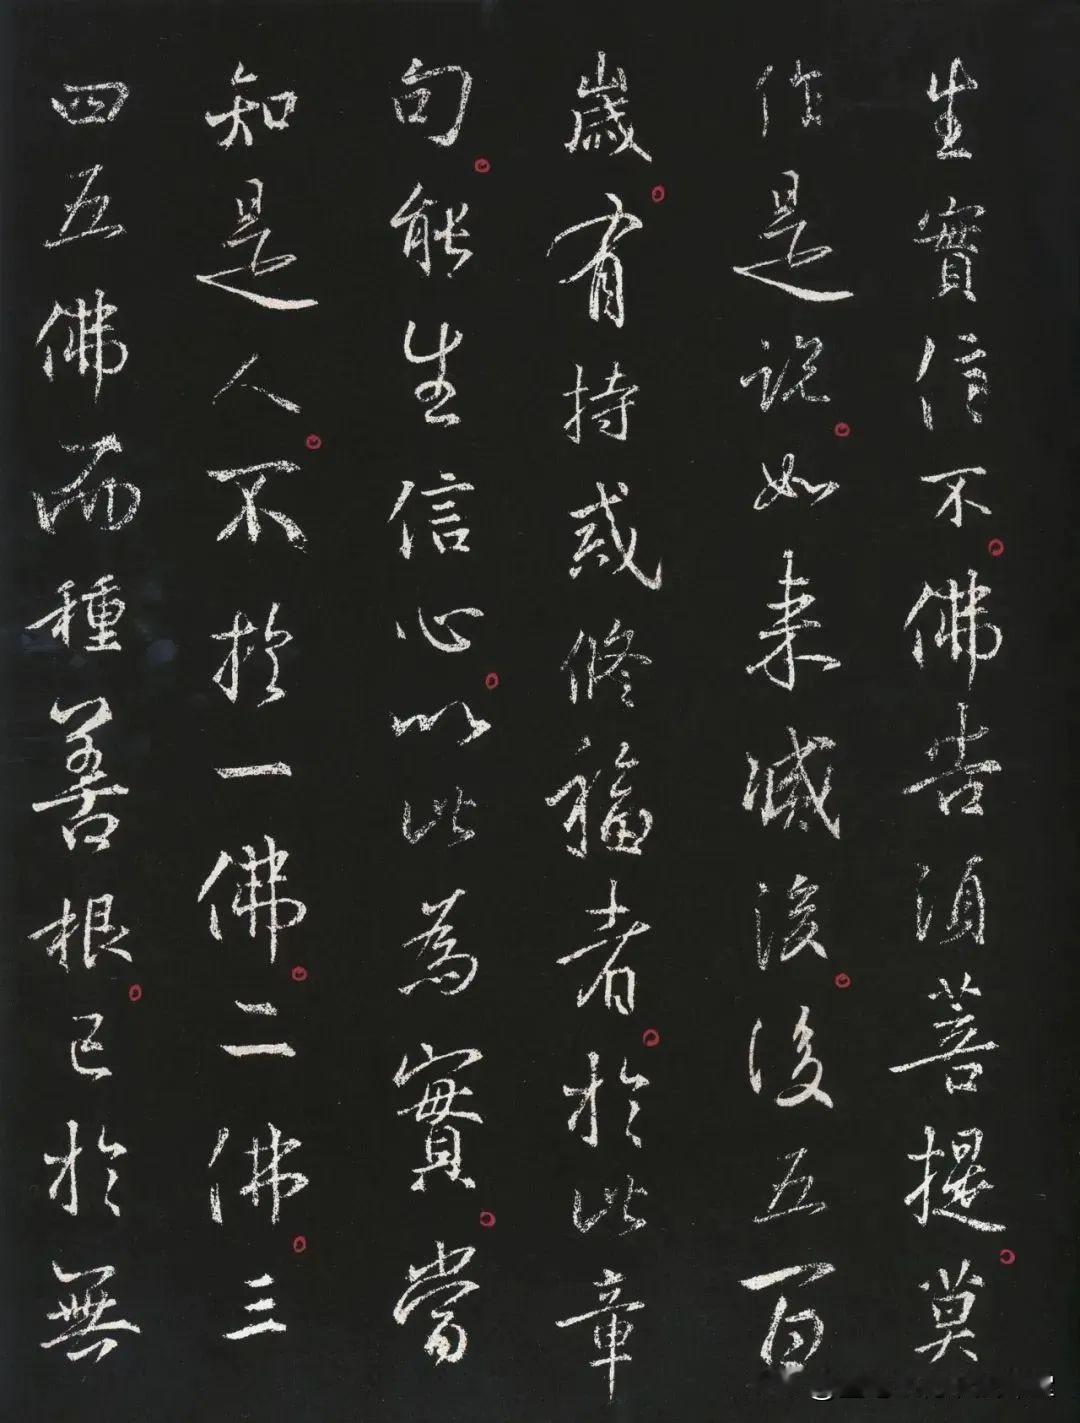 生實信不。佛告須菩提。莫
作是說。如来滅後。後五百
歲。有持戒修福者。於此章
句。能生信心。以此為實。當
知是人。不於一佛。二佛。三
四五佛而種善根。已於無